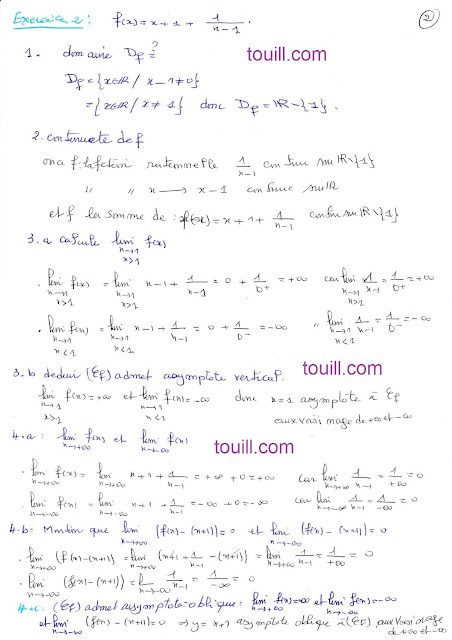 Exercice 2 : f(x) = x + 1 + 1/(x-1) . 2
touill.com
1. domaine Df ?
Df = {x∈IR / x - 1 ≠ 0}
= {x∈IR / x ≠ 1} donc Df = IR - {1} .
2. continuete de f
ona f: la fction rationnelle 1/(x-1) continue sur IR\{1}
" " x → x - 1 continue sur IR
et f la somme de : f(x) = x + 1 + 1/(x-1) continue sur IR\{1}
3. a calcule lim x→1 x>1 f(x)
touill.com
. lim x→1 x>1 f(x) = lim x→1 x>1 x - 1 + 1/(x-1) = 0 + 1/0⁺ = +∞ car lim x→1 x>1 1/(x-1) = 1/0⁺ = +∞
. lim x→1 x<1 f(x) = lim x→1 x<1 x - 1 + 1/(x-1) = 0 + 1/0⁻ = -∞ " lim x→1 x<1 1/(x-1) = 1/0⁻ = -∞
touill.com
3. b deduir (Cf) admet asymptote vertical.
lim x→1 x>1 f(x) = +∞ et lim x→1 x<1 f(x) = -∞ donc x = 1 asymptote à Cf
aux voisinage de +∞ et -∞
4. a : lim x→+∞ f(x) et lim x→-∞ f(x)
touill.com
. lim x→+∞ f(x) = lim x→+∞ x + 1 + 1/(x-1) = +∞ + 0 = +∞ car lim x→+∞ 1/(x-1) = 1/+∞ = 0
. lim x→-∞ f(x) = lim x→-∞ x + 1 + 1/(x-1) = -∞ + 0 = -∞ car lim x→-∞ 1/(x-1) = 1/-∞ = 0
4. b : Montion que lim x→+∞ (f(x) - (x+1)) = 0 et lim x→-∞ (f(x) - (x+1)) = 0
. lim x→+∞ (f(x) - (x+1)) = lim x→+∞ (x + 1 + 1/(x-1) - (x+1)) = lim x→+∞ 1/(x-1) = 1/+∞ = 0
. lim x→-∞ (f(x) - (x+1)) = lim x→-∞ 1/(x-1) = 1/-∞ = 0
4. c : (Cf) admet asymptote oblique : lim x→+∞ f(x) = +∞ et lim x→-∞ f(x) = -∞
et lim x→-∞ (f(x) - (x+1)) = 0 ⇒ y = x + 1 asymptote oblique à (Cf) aux voisinage
de +∞ et -∞